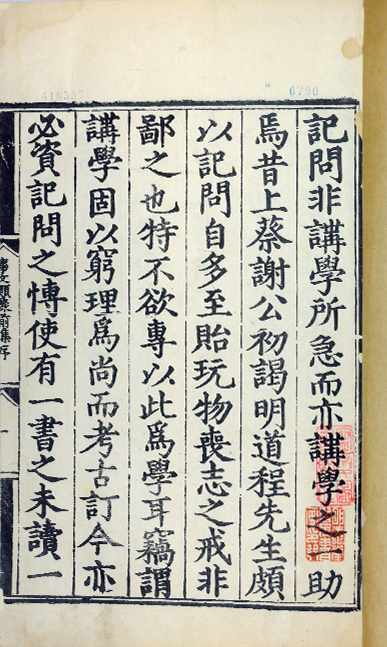 記問非講學所急而亦講學之一助
焉昔上蔡謝公初謁明道程先生頗
以記問自多至貽玩物喪志之戒非
鄙之也特不欲專以此爲學耳竊謂
講學固以窮理爲尚而考古訂今亦
必資記問之愽使有一書之未讀一
0760